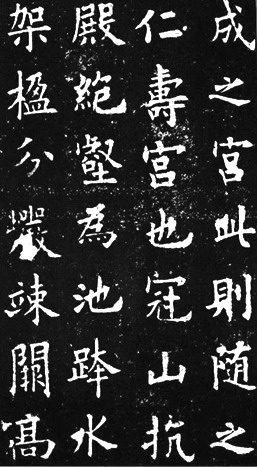 成之宫此則随之
仁壽宫也冠山抗
殿絶壑為池跨水
架楹分巖竦闕高